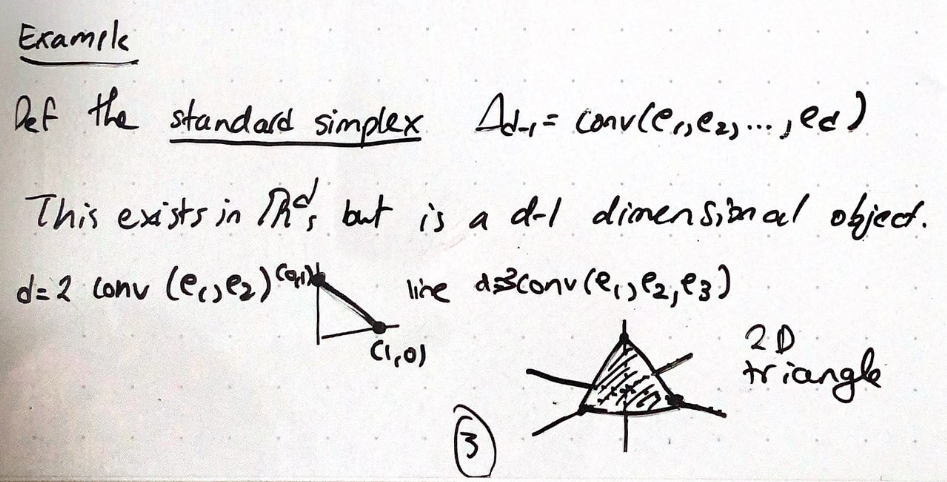 Example
Def the standard simplex Δd-1 = conv(e1, e2, ..., ed)
This exists in ℝd, but is a d-1 dimensional object.
d=2 conv (e1, e2) (0,1) line d=3 conv(e1, e2, e3)
(1,0)
2D
triangle
3